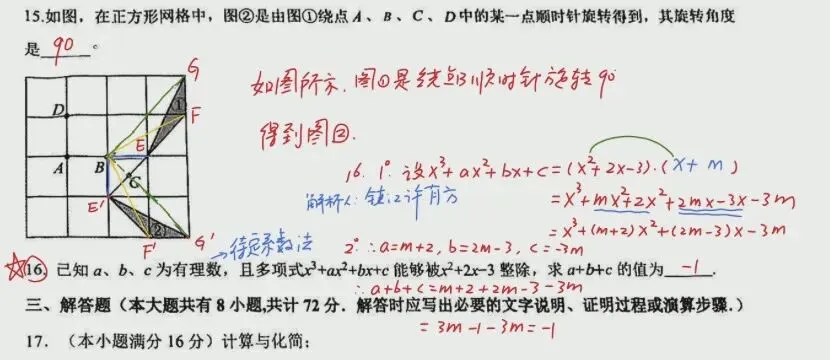 15.如图，在正方形网格中，图②是由图①绕点 A、B、C、D中的某一点顺时针旋转得到，其旋转角度
是 90 °
G
①
F
D
E
A
B
C
E'
②
F'
G'
如图所示，图①是绕点B顺时针旋转90°
得到图②.
16. 1° 设x³+ax²+bx+c=(x²+2x-3)·(x+m)
解析人:镇江许有方
=x³+mx²+2x²+2mx-3x-3m
=x³+(m+2)x²+(2m-3)x-3m
→待定系数法
2° ∴a=m+2, b=2m-3, c=-3m
☆16. 已知 a、b、c 为有理数，且多项式x³+ax²+bx+c 能够被x²+2x-3 整除，求 a+b+c 的值为 -1 .
∴a+b+c=m+2+2m-3-3m
三、解答题（本大题共有 8 小题,共计 72 分．解答时应写出必要的文字说明、证明过程或演算步骤.）
=3m-1-3m=-1
17．（本小题满分 16 分）计算与化简：